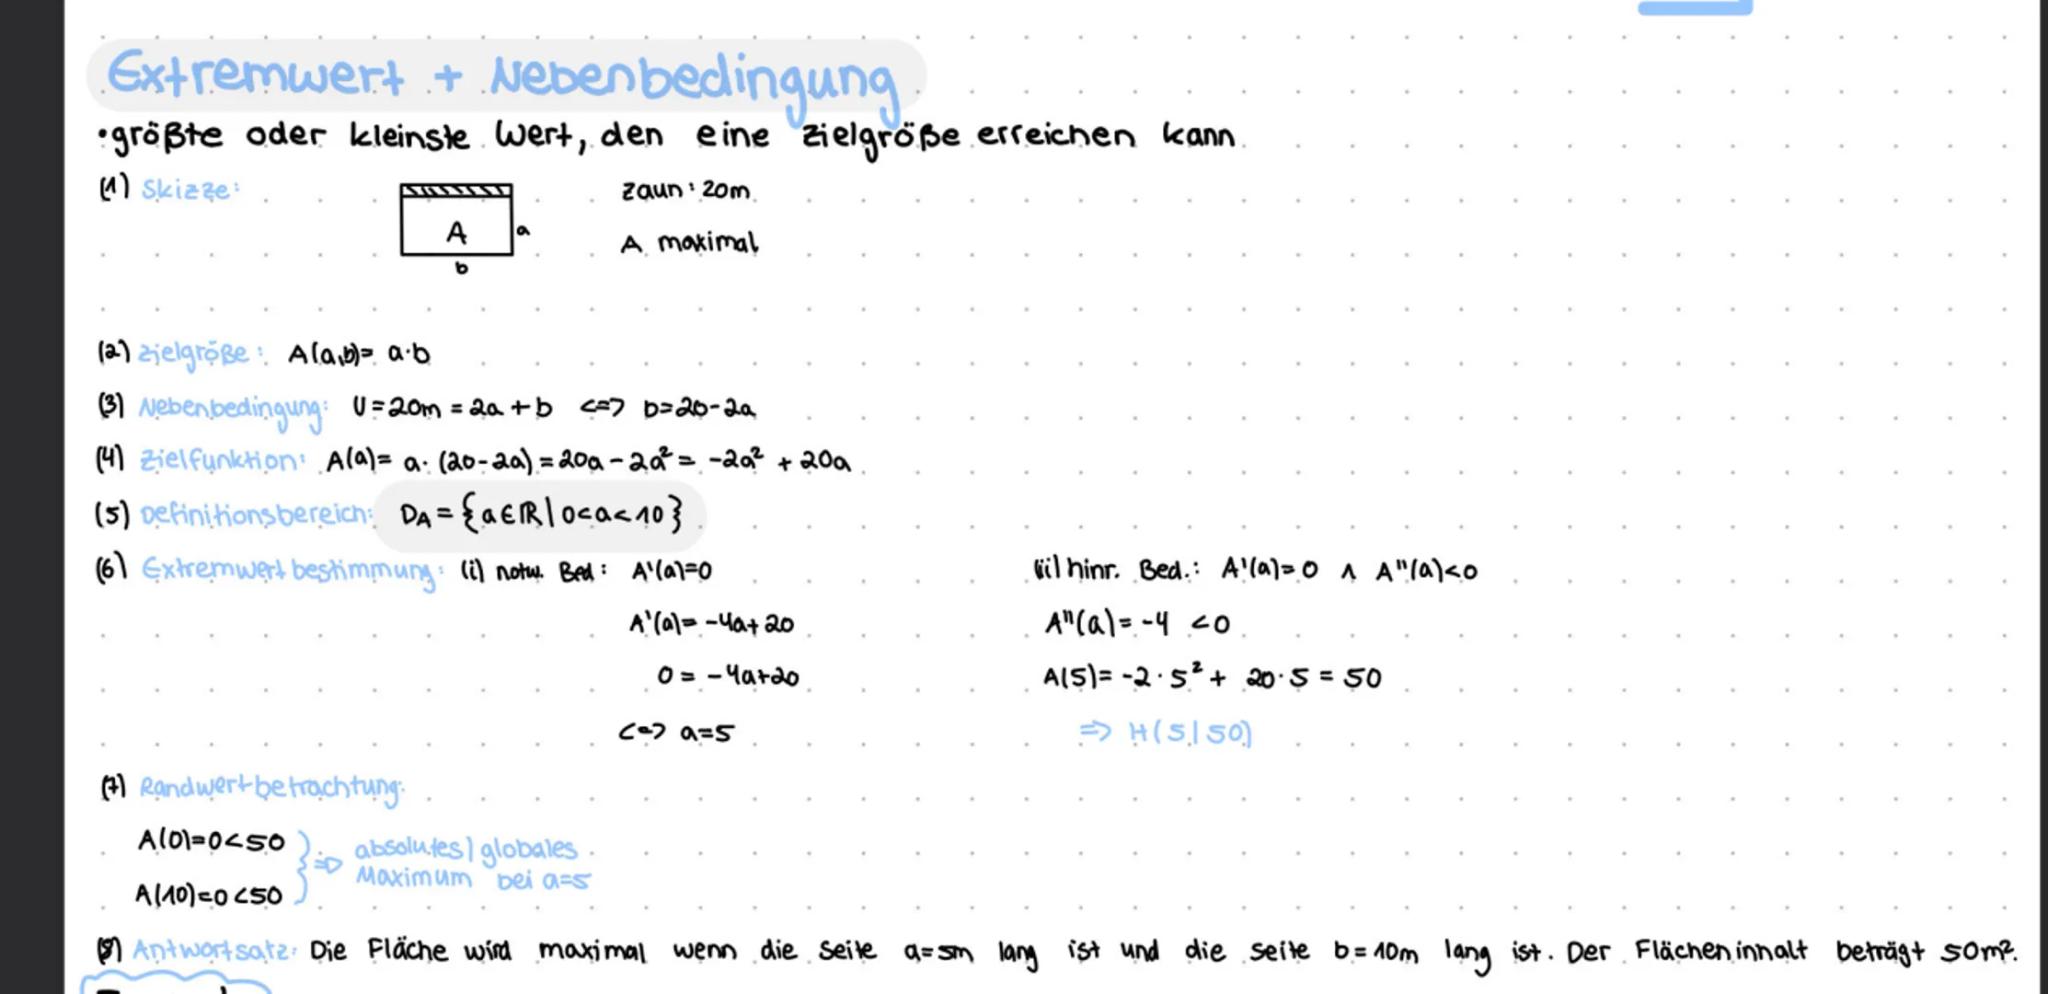 Extremwert + Nebenbedingung
•größte oder kleinste Wert, den eine Zielgröße erreichen kann
(1) Skizze:
Zaun: 20m
A
a
A maximal
b
(2) Zielgröße: A(a,b)= a·b
(3) Nebenbedingung: U=20m = 2a+b <=> b=20-2a
(4) Zielfunktion: A(a)= a·(20-2a) = 20a-2a² = -2a² + 20a
(5) Definitionsbereich: D_A = {a∈ℝ | 0<a<10}
(6) Extremwertbestimmung: (i) notw. Bed: A'(a)=0
(ii) hinr. Bed.: A'(a)=0 ∧ A''(a)<0
A'(a)= -4a+20
A''(a)= -4 <0
0 = -4a+20
A(5)= -2·5² + 20·5 = 50
<=> a=5
=> H(5|50)
(7) Randwertbetrachtung:
A(0)=0<50
A(10)=0<50
=> absolutes/globales
Maximum bei a=5
(8) Antwortsatz: Die Fläche wird maximal wenn die Seite a=5m lang ist und die Seite b=10m lang ist. Der Flächeninnalt beträgt 50m².